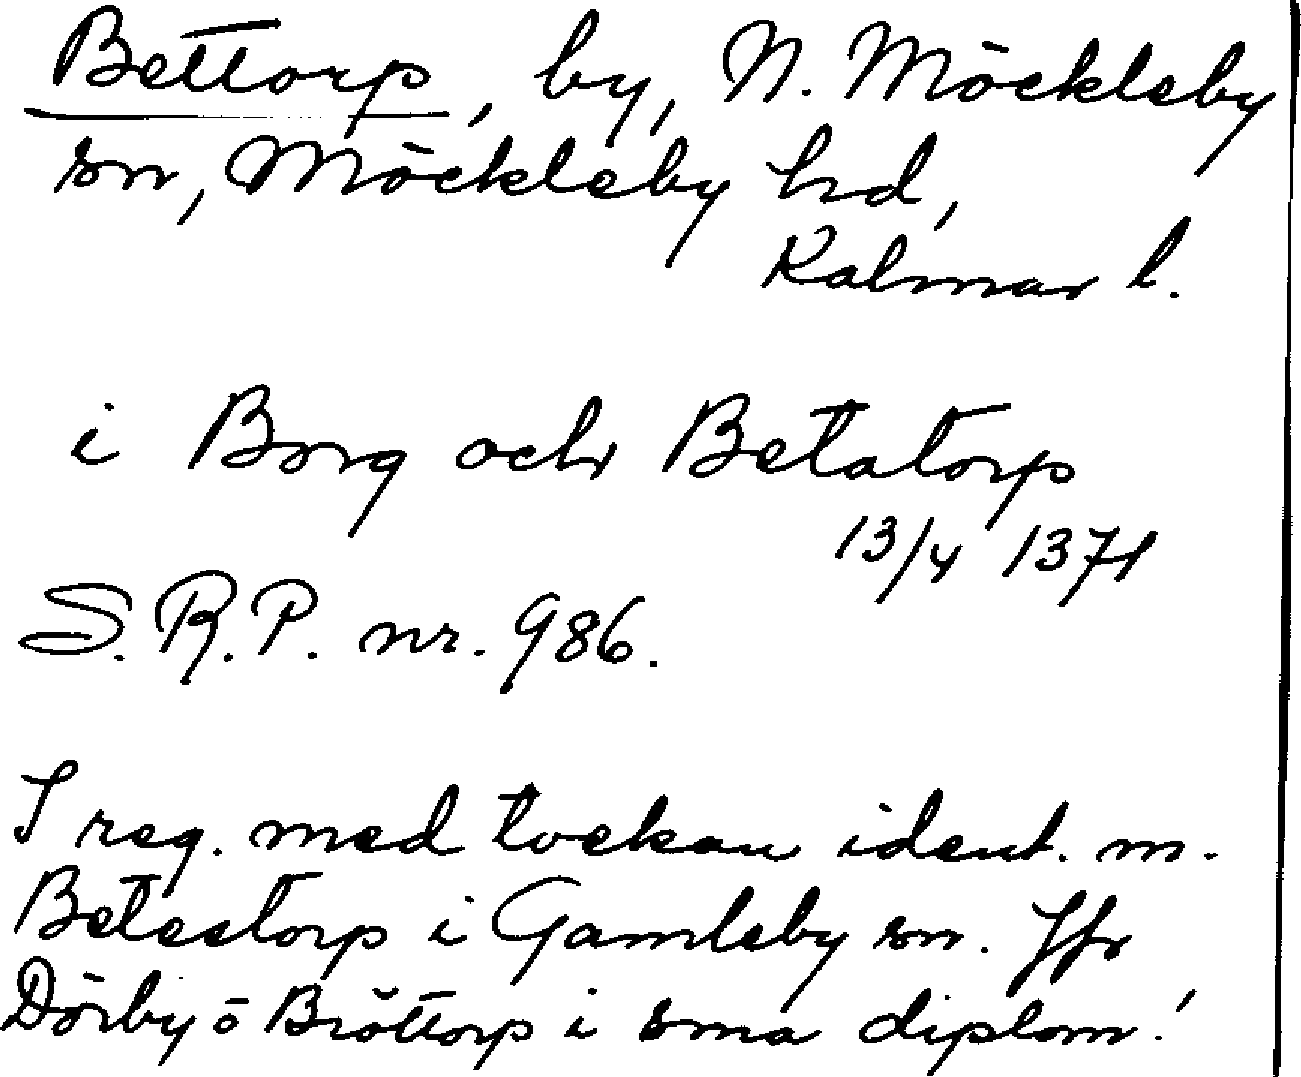 Bettorp, by, N. Möckleby
sn, Möckleby hd,
Kalmar l.
i Borg och Betatorp
13/4 1371
S.R.P. nr. 986.
I reg. med tvekan ident. m.
Betestorp i Gamleby sn. Jfr
Dörby o Bröttorp i sma diplom!